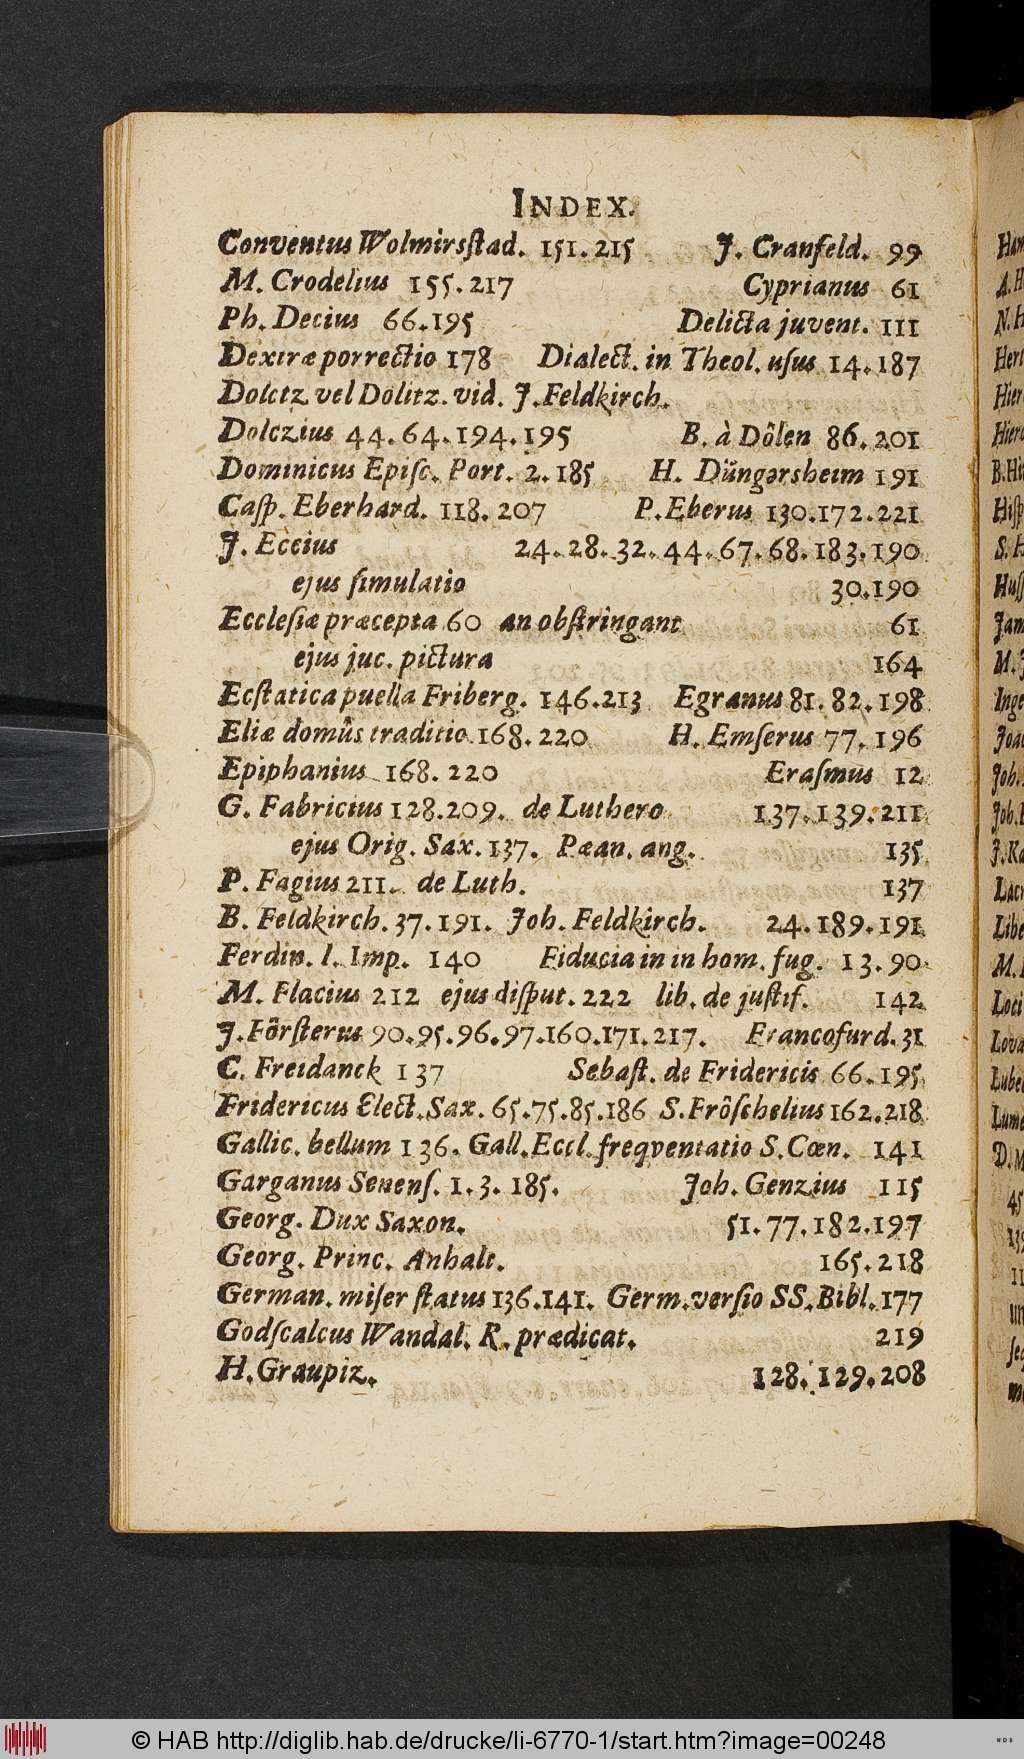 INDEX.
Conventus Wolmirsſtad. 151. 215 J. Cranfeld. 99
M. Crodelius 155. 217 Cyprianus 61
Ph. Decius 66. 195 Delicta juvent. 111
Dextræ porrectio 178 Dialect. in Theol. uſus 14. 187
Dolctz vel Dolitz. vid. J. Feldkirch.
Dolczius 44. 64. 194. 195 B. à Dôlen 86. 201
Dominicus Epiſc. Port. 2. 185 H. Düngersheim 191
Caſp. Eberhard. 118. 207 P. Eberus 130. 172. 221
J. Eccius 24. 28. 32. 44. 67. 68. 183. 190
ejus ſimulatio 30. 190
Eccleſiæ præcepta 60 an obſtringant 61
ejus juc. pictura 164
Ecſtatica puella Friberg. 146. 213 Egranus 81. 82. 198
Eliæ domûs traditio 168. 220 H. Emſerus 77. 196
Epiphanius 168. 220 Eraſmus 12
G. Fabricius 128. 209. de Luthero 137. 139. 211
ejus Orig. Sax. 137. Pæan. ang. 135
P. Fagius 211. de Luth. 137
B. Feldkirch. 37. 191. Joh. Feldkirch. 24. 189. 191
Ferdin. I. Imp. 140 Fiducia in in hom. fug. 13. 90
M. Flacius 212 ejus diſput. 222 lib. de juſtif. 142
J. Fôrſterus 90. 95. 96. 97. 160. 171. 217. Francofurd. 31
C. Freidanck 137 Sebaſt. de Fridericis 66. 195
Fridericus Elect. Sax. 65. 75. 85. 186 S. Frôſchelius 162. 218
Gallic. bellum 136. Gall. Eccl. freqventatio S. Cœn. 141
Garganus Senenſ. 1. 3. 185. Joh. Genzius 115
Georg. Dux Saxon. 51. 77. 182. 197
Georg. Princ. Anhalt. 165. 218
German. miſer ſtatus 136. 141. Germ. verſio SS. Bibl. 177
Godſcalcus Wandal. R. prædicat. 219
H. Graupiz. 128. 129. 208
© HAB http://diglib.hab.de/drucke/li-6770-1/start.htm?image=00248